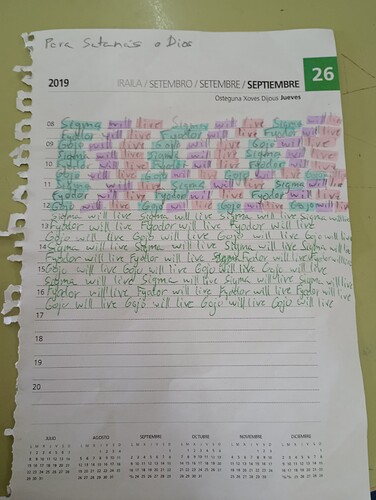 Para Satanás o Dios
2019 IRAILA / SETEMBRO / SETEMBRE / SEPTIEMBRE 26
Osteguna Xoves Dijous Jueves
08 Sigma will live Sigma will live Sigma will live
Fyodor will live Fyodor will live Fyodor will live
09 Gojo will live Gojo will live Gojo will live
Sigma will live Sigma will live Sigma will live
10 Fyodor will live Fyodor will live Fyodor will live
Gojo will live Gojo will live Gojo will live
11 Sigma will live Sigma will live Sigma will live
Fyodor will live Fyodor will live Fyodor will live
12 Gojo will live Gojo will live Gojo will live
Sigma will live Sigma will live Sigma will live Sigma will live
13 Fyodor will live Fyodor will live Fyodor will live
Gojo will live Gojo will live Gojo will live Gojo will live
14 Sigma will live Sigma will live Sigma will live Sigma will live
Fyodor will live Fyodor will live Fyodor will live Fyodor will live
15 Gojo will live Gojo will live Gojo will live Gojo will live
Sigma will live Sigma will live Sigma will live Sigma will live
16 Fyodor will live Fyodor will live Fyodor will live Fyodor will live
Gojo will live Gojo will live Gojo will live Gojo will live
17
18
19
20
JULIO AGOSTO SEPTIEMBRE OCTUBRE NOVIEMBRE DICIEMBRE